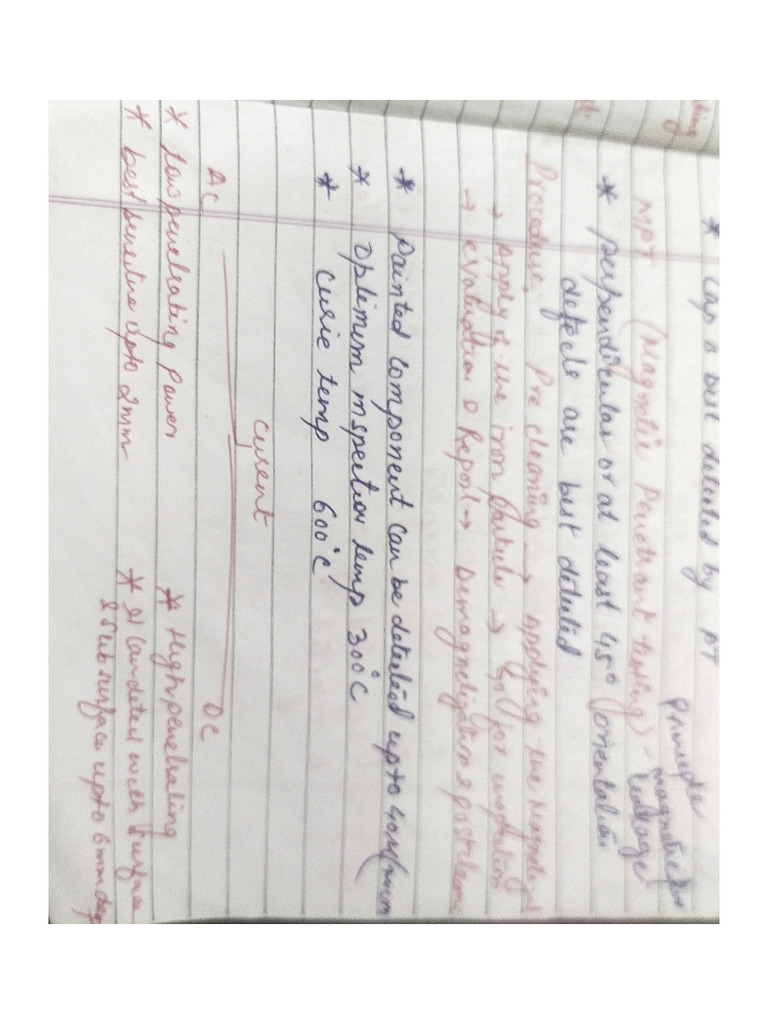 * Lap is best detected by PT
MPT (Magnetic Penetrant testing) - Principle magnetic flux leakage
* perpendicular or at least 45° orientation
defects are best detected
Procedure: Pre cleaning → applying the
→ apply of the iron particle → go for
→ evaluation & Report → Demagnetization & post
* Painted component can be detected upto
* Optimum inspection temp 300°C
* Curie temp 600°C
Current
AC DC
* Low penetrating Power
* best sensitive upto 2mm
* High penetrating
* It can detect with Surface
& Sub surface upto 6mm deep